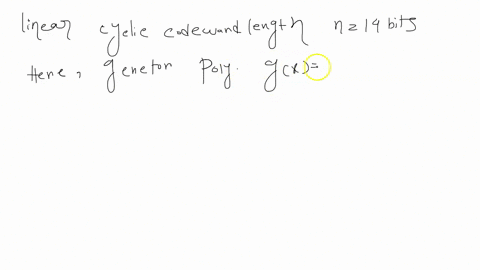 linear cyclic codeword length n = 14 bits
Here, genetor poly. g(x)=